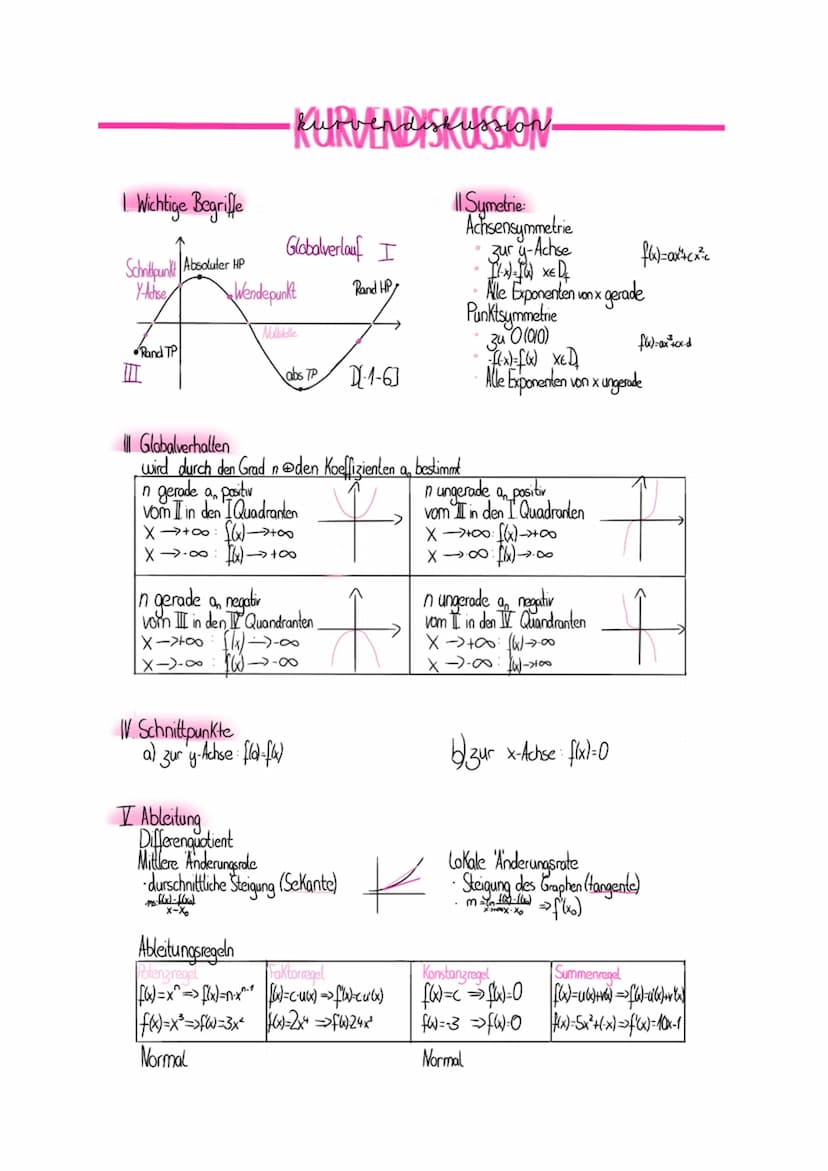 KURVENDISKUSSION
kurvendiskussion
I Wichtige Begriffe
Globalverlauf I
Schnittpunkt
Y-Achse
Absoluter HP
Wendepunkt
Rand HP
Nullstelle
Rand TP
III
abs TP
D[-1-6]
II Symetrie:
Achsensymmetrie
• zur y-Achse
f(x)=ax⁴+cx²-c
• f(-x)=f(x) x∈Df
• Alle Exponenten von x gerade
Punktsymmetrie
• zu O(0/0)
f(x)=ax³+cx-d
• -f(-x)=f(x) x∈Df
• Alle Exponenten von x ungerade
III Globalverhalten
wird durch den Grad n ⊕ den Koeffizienten aₙ bestimmt
n gerade aₙ positiv
vom II in den I Quadranten
X →+∞ : f(x)→+∞
X →-∞ : f(x)→+∞
n ungerade aₙ positiv
vom III in den I Quadranten
X →+∞ : f(x)→+∞
X → ∞ : f(x)→-∞
n gerade aₙ negativ
vom III in den IV Quandranten
X →+∞ : f(x) →-∞
X →-∞ : f(x) →-∞
n ungerade aₙ negativ
vom II in den IV Quandranten
X →+∞ : f(x)→-∞
X →-∞ : f(x)→+∞
IV Schnittpunkte
a) zur y-Achse : f(0)=f(x)
b) zur x-Achse : f(x)=0
V Ableitung
Differenquotient
Mittlere Änderungsrate
· durschnittliche Steigung (Sekante)
m=f(x)-f(x₀)/x-x₀
Lokale Änderungsrate
· Steigung des Graphen (tangente)
⇒ f'(x₀)
Ableitungsregeln
Potenzregel
f(x)=xⁿ⇒f(x)=n·xⁿ⁻¹
f(x)=x³⇒f(x)=3x²
Faktorregel
f(x)=c·u(x)⇒f'(x)=c·u'(x)
f(x)=2x⁴ ⇒f(x)24x³
Konstanzregel
f(x)=c ⇒f'(x)=0
f(x)=-3 ⇒f(x)=0
Summenregel
f(x)=u(x)+v(x)⇒f(x)=u'(x)+v'(x)
f(x)=5x²+(-x)⇒f'(x)=10x-1
Normal
Normal